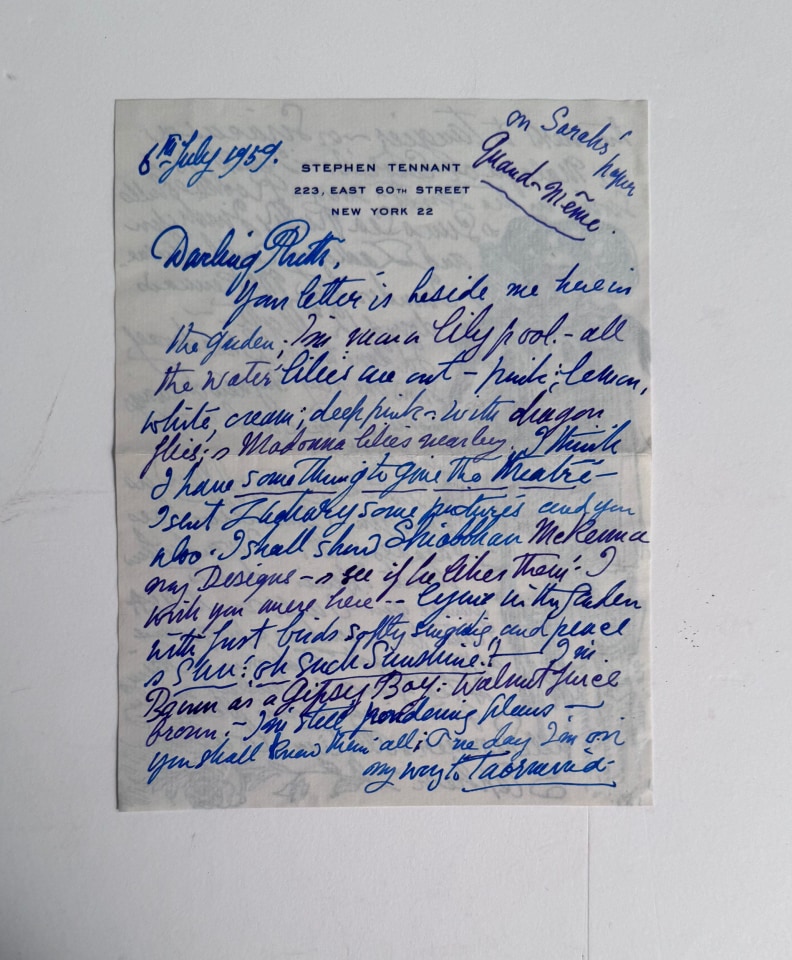 6th July 1959.
on Sarahs' paper
Quand-Même.
STEPHEN TENNANT
223, EAST 60TH STREET
NEW YORK 22
Darling Ruth,
Your letter is beside me here in
the garden; I'm near a lily pool. - all
the water lilies are out - pink; lemon,
white, cream; deep pink - with dragon
flies; & Madonna lilies nearby. I think
I have something to give the theatre -
I sent Zachary some pictures and you
also. I shall show Shiobhan McKenna
my Designs - & see if he likes them: I
wish you were here -- lying in the garden
with just birds softly singing, and peace
& Sun! oh such Sunshine! I'm
Brown as a Gipsy Boy: walnut juice
brown. - I'm still pondering plans -
you shall know them all; One day I'm on
my way to Taormina.